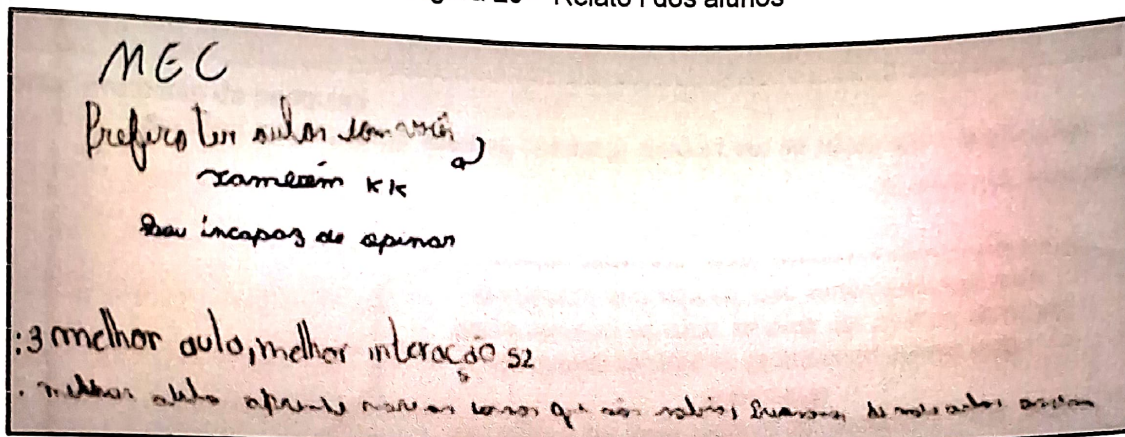 Relato I dos alunos
MEC
Prefiro ter aulas com vocês
também kk
Sou incapaz de opinar
:3 melhor aula, melhor interação s2
. melhor aula aprende que não